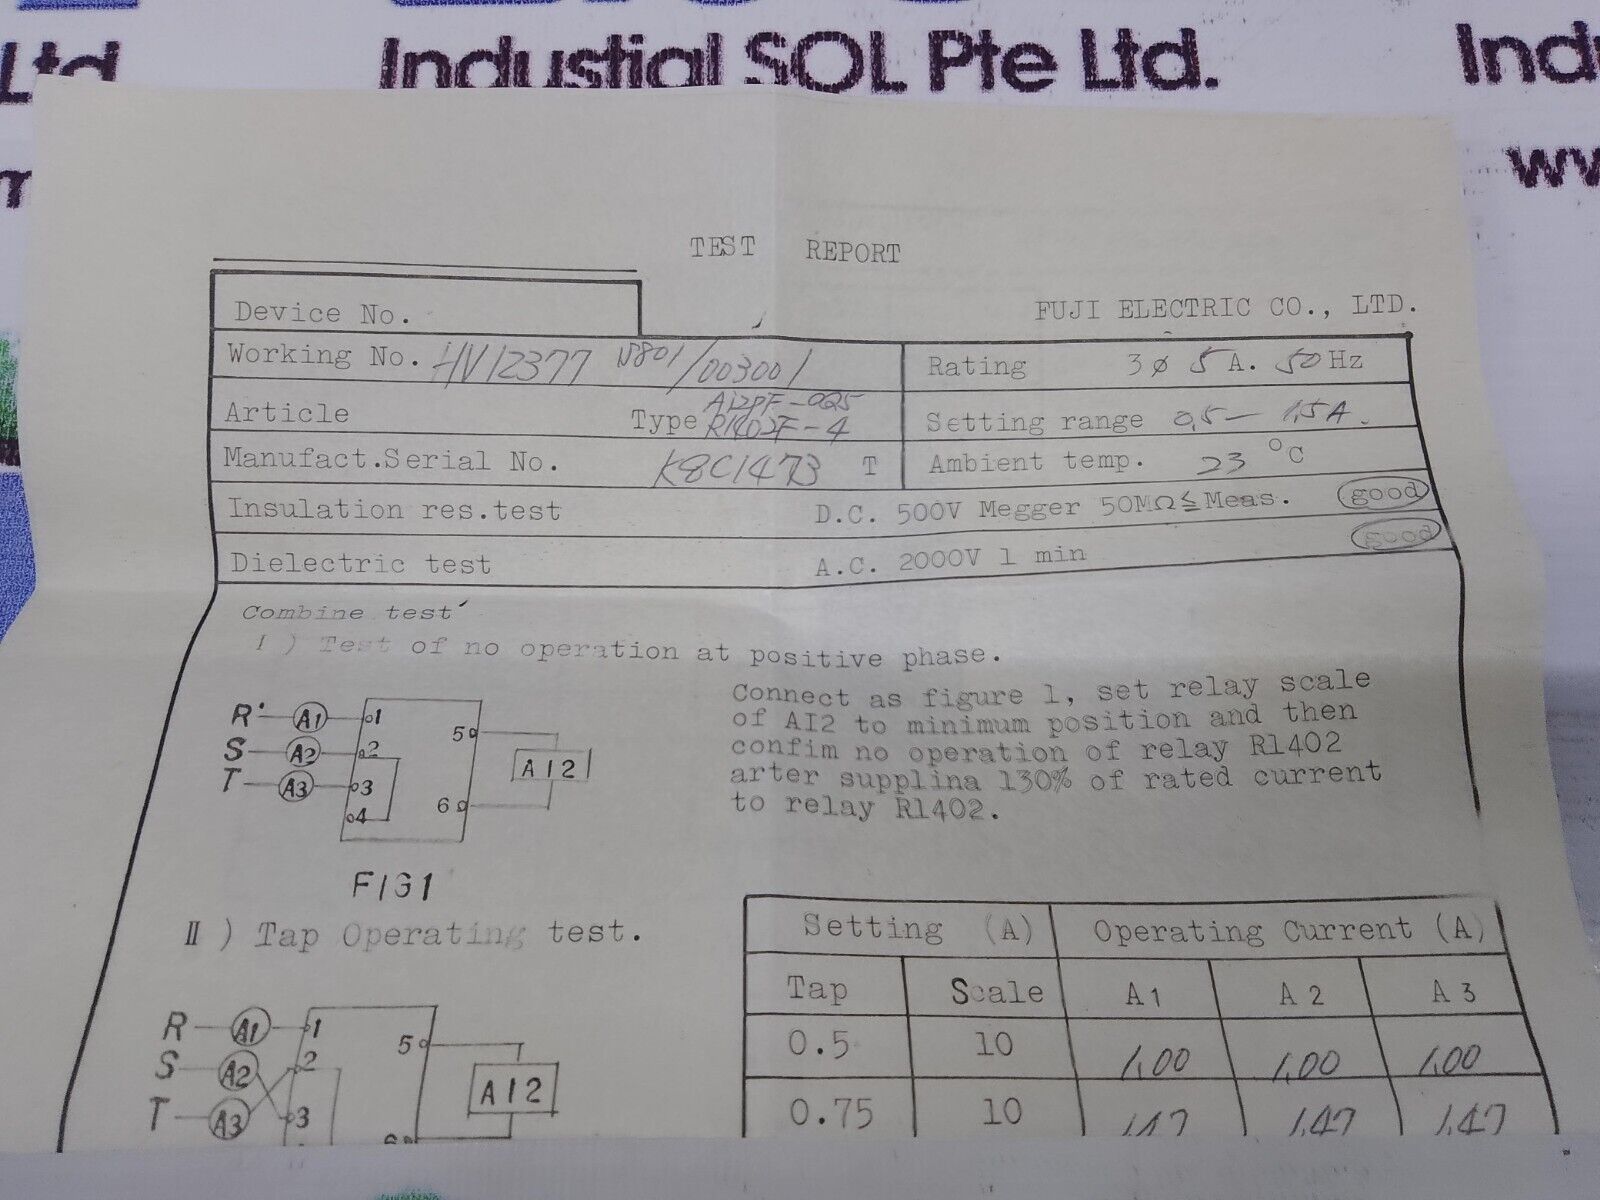 Ltd
Industial SOL Pte Ltd.
Ind
m
ww
TEST REPORT
Device No.
FUJI ELECTRIC CO., LTD.
Working No. HV12377 N801/003001
Rating 3ø 5A. 50Hz
Article Type AI2PF-0Q5
R1402F-4
Setting range 0,5 - 1,5A.
Manufact.Serial No. K8C1473 T
Ambient temp. 23 °C
Insulation res.test D.C. 500V Megger 50MΩ≦Meas. good
Dielectric test A.C. 2000V 1 min good
Combine test
I ) Test of no operation at positive phase.
Connect as figure 1, set relay scale
of AI2 to minimum position and then
confim no operation of relay R1402
arter supplina 130% of rated current
to relay R1402.
R A1 1
S A2 2
T A3 3
4
5
6
AI2
FIG1
II ) Tap Operating test.
R A1 1
S A2 2
T A3 3
5
6
AI2
Setting (A) Operating Current (A)
Tap Scale A1 A2 A3
0.5 10 1,00 1,00 1,00
0.75 10 1,47 1,47 1,47